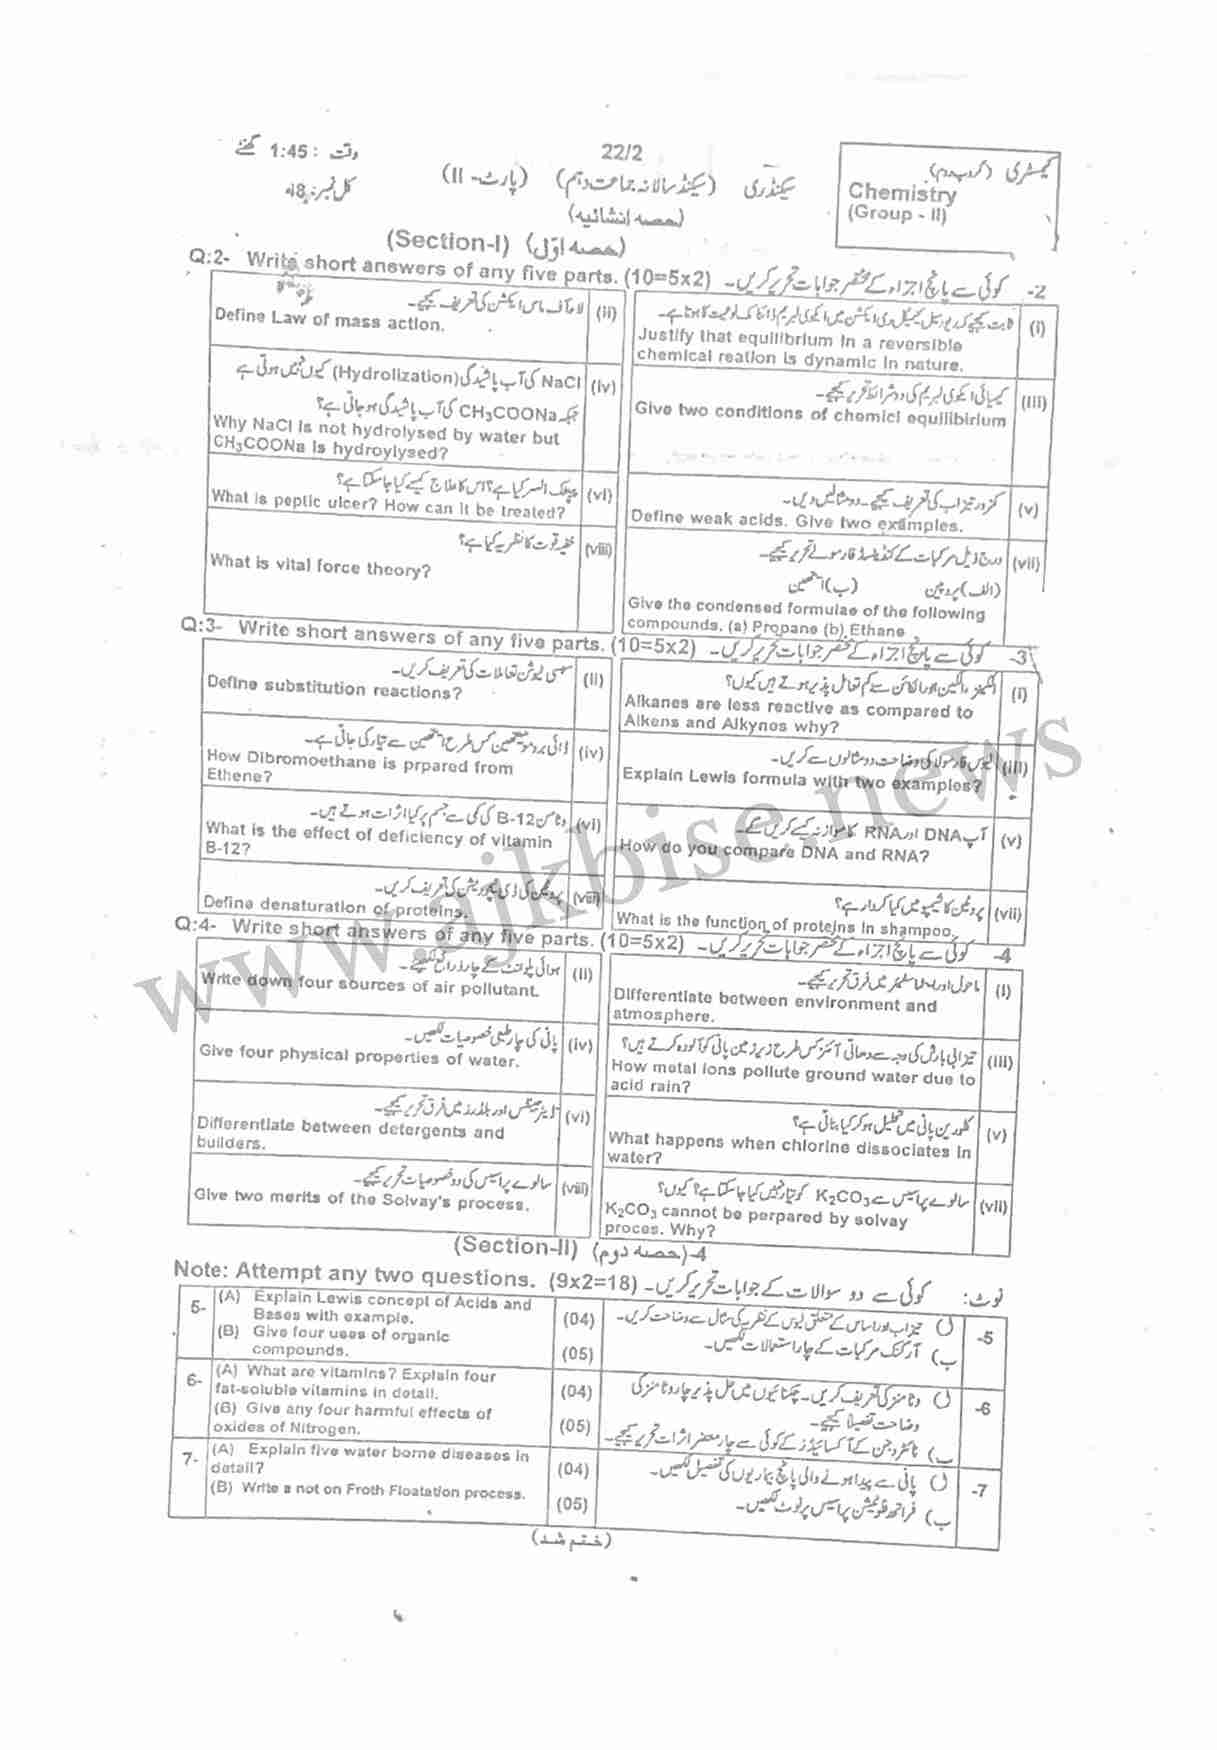 وقت : 1:45 گھنٹے
22/2
کیمسٹری (گروپ دوم)
کل نمبر: 48
سیکنڈری (سیکنڈ سالانہ جماعت دہم) (پارٹ-II)
Chemistry
(Group - II)
(حصہ انشائیہ)
(Section-I) (حصہ اوّل)
Q:2- Write short answers of any five parts. (10=5x2) کوئی سے پانچ اجزاء کے مختصر جوابات تحریر کریں۔ -2
(i) ثابت کیجئے کہ
Justify that equilibrium in a reversible
chemical reation is dynamic in nature.
(ii) لاء آف ماس ایکشن کی تعریف کیجئے۔
Define Law of mass action.
(iii) کیمیائی ایکوی لبریم کی دو شرائط تحریر کیجئے۔
Give two conditions of chemicl equilibirium
(iv) NaCl کی آب پاشیدگی (Hydrolization) کیوں نہیں ہوتی ہے
جبکہ CH₃COONa کی آب پاشیدگی ہو جاتی ہے؟
Why NaCl is not hydrolysed by water but
CH₃COONa is hydroylysed?
(v) کمزور تیزاب کی تعریف کیجئے۔ دو مثالیں دیں۔
Define weak acids. Give two examples.
(vi) پیپٹک السر کیا ہے؟ اس کا علاج کیسے کیا جا سکتا ہے؟
What is peptic ulcer? How can it be treated?
(vii) درج ذیل مرکبات کے کنڈینسڈ فارمولے تحریر کیجئے۔
(الف) پروپین (ب) ایتھین
Give the condensed formulae of the following
compounds. (a) Propane (b) Ethane
(viii) قوت کا نظریہ کیا ہے؟
What is vital force theory?
Q:3- Write short answers of any five parts. (10=5x2) کوئی سے پانچ اجزاء کے مختصر جوابات تحریر کریں۔ -3
(i) الکینز، الکین اور الکائن سے کم تعامل پذیر ہوتے ہیں کیوں؟
Alkanes are less reactive as compared to
Alkens and Alkynes why?
(ii) سبسٹی ٹیوشن تعاملات کی تعریف کریں۔
Define substitution reactions?
(iii) لیوس فارمولا کی وضاحت دو مثالوں سے کریں۔
Explain Lewis formula with two examples?
(iv) ڈائی بروموایتھین کس طرح ایتھین سے تیار کی جاتی ہے۔
How Dibromoethane is prpared from
Ethene?
(v) آپ DNA اور RNA کا موازنہ کیسے کریں گے۔
How do you compare DNA and RNA?
(vi) وٹامن B-12 کی کمی سے جسم پر کیا اثرات ہوتے ہیں۔
What is the effect of deficiency of vitamin
B-12?
(vii) پروٹین کا شیمپو میں کیا کردار ہے؟
What is the function of proteins in shampoo.
(viii) پروٹین کی ڈی نیچوریشن کی تعریف کریں۔
Define denaturation of proteins.
Q:4- Write short answers of any five parts. (10=5x2) کوئی سے پانچ اجزاء کے مختصر جوابات تحریر کریں۔ -4
(i) ماحول اور ایٹماسفیئر میں فرق تحریر کیجئے۔
Differentiate between environment and
atmosphere.
(ii) ہوائی پلوٹنٹ کے چار ذرائع لکھیئے۔
Write down four sources of air pollutant.
(iii) تیزابی بارش کی وجہ سے دھاتی آئنز کس طرح زیر زمین پانی کو آلودہ کرتے ہیں؟
How metal ions pollute ground water due to
acid rain?
(iv) پانی کی چار طبعی خصوصیات لکھیں۔
Give four physical properties of water.
(v) کلورین پانی میں تحلیل ہو کر کیا بناتی ہے؟
What happens when chlorine dissociates in
water?
(vi) ڈیٹرجنٹس اور بلڈرز میں فرق تحریر کیجئے۔
Differentiate between detergents and
builders.
(vii) سالوے پراسیس سے K₂CO₃ کو تیار نہیں کیا جا سکتا ہے؟ کیوں؟
K₂CO₃ cannot be perpared by solvay
proces. Why?
(viii) سالوے پراسیس کی دو خصوصیات تحریر کیجئے۔
Give two merits of the Solvay's process.
(Section-II) (حصہ دوم)-4
Note: Attempt any two questions. (9x2=18) نوٹ: کوئی سے دو سوالات کے جوابات تحریر کریں۔
5- (A) Explain Lewis concept of Acids and
Bases with example. (04)
(B) Give four uses of organic
compounds. (05)
-5 تیزاب اور اساس کے متعلق لیوس کے نظریہ کی مثال سے وضاحت کریں۔
ب) آرگینک مرکبات کے چار استعمالات لکھیں۔
6- (A) What are vitamins? Explain four
fat-soluble vitamins in detail. (04)
(B) Give any four harmful effects of
oxides of Nitrogen. (05)
-6 وٹامنز کی تعریف کریں۔ چکنائیوں میں حل پذیر چار وٹامنز کی
وضاحت تفصیلاً کیجئے۔
ب) نائٹروجن کے آکسائیڈز کے کوئی سے چار مضر اثرات تحریر کیجئے۔
7- (A) Explain five water borne diseases in
detail? (04)
(B) Write a not on Froth Floatation process. (05)
-7 پانی سے پیدا ہونے والی پانچ بیماریوں کی تفصیل لکھیں۔
ب) فراتھ فلوٹیشن پراسیس پر نوٹ لکھیں۔
(ختم شد)
www.ajkbise.news